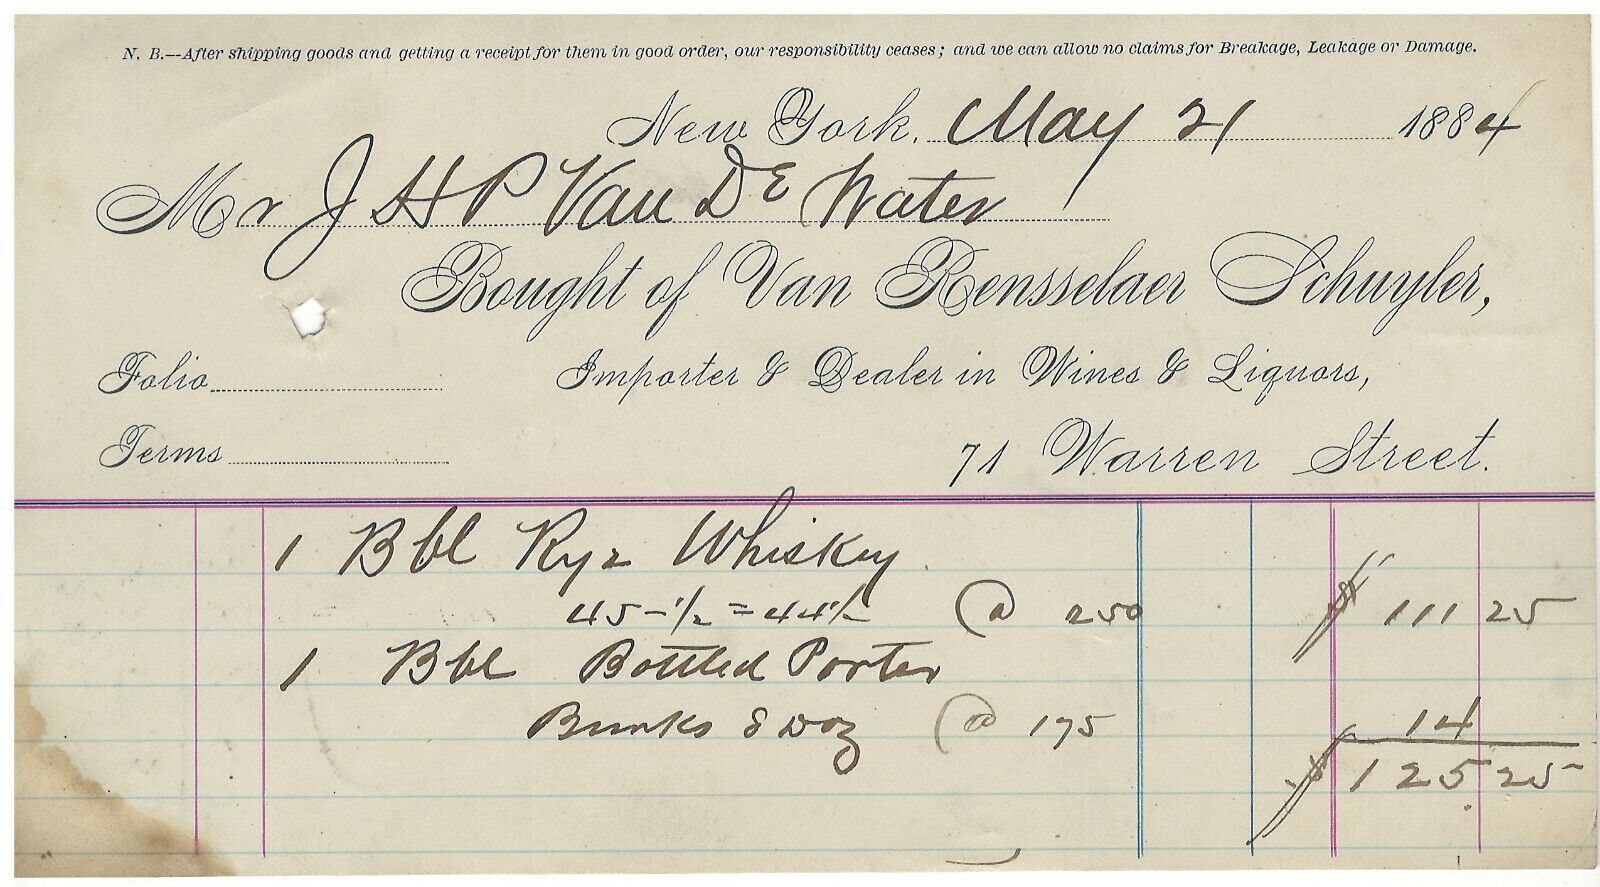 N. B.—After shipping goods and getting a receipt for them in good order, our responsibility ceases; and we can allow no claims for Breakage, Leakage or Damage.
New York, May 21 1884
Mr J H P Van De Water
Bought of Van Rensselaer Schuyler,
Folio Importer & Dealer in Wines & Liquors,
Terms 71 Warren Street.
1 Bbl Rye Whiskey
45-1/2 = 44 1/2 @ 250 $ 111 25
1 Bbl Bottled Porter
8 Doz @ 175 14
$ 125 25